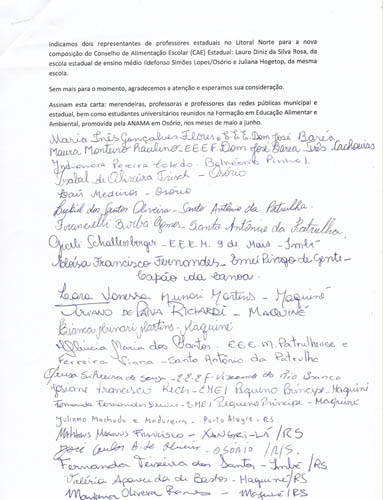 indicamos dois representantes de professores estaduais no Litoral Norte para a nova
composição do Conselho de Alimentação Escolar (CAE) Estadual: Lauro Diniz da Silva Rosa, da
escola estadual de ensino médio Ildefonso Simões Lopes/Osório e Juliana Hogetop, da mesma
escola.
Sem mais para o momento, agradecemos a atenção e esperamos sua consideração.
Assinam esta carta: merendeiras, professoras e professores das redes públicas municipal e
estadual, bem como estudantes universitários reunidos na Formação em Educação Alimentar e
Ambiental, promovida pela ANAMA em Osório, nos meses de maio a junho.
Maria Inês Gonçalves Flores - E.E.E. Dom José Baréa
Maura Monteiro Paulino - E.E.E.F. Dom José Barea Três Cachoeiras
Pereira Toledo. Balneário Pinhal.
de Oliveira - Osório
Medeiros - Osório
dos Santos Oliveira - Santo Antônio da Patrulha.
Francielli Borba Gomes - Santo Antônio da Patrulha
Schallenberger - E.E.E.M. 9 de Maio - Imbé
Heloísa Francisco Fernandes - Emei Pingo de Gente -
Capão da Canoa.
Lara Vanessa Munari Martins - Maquiné
de Paiva Richardi - Maquiné
Bianca Munari Martins - Maquiné
Maria dos Santos. E.E.E.M. Patrulhense e
Ferreira Viana - Santo Antônio da Patrulha
de Souza - E.E.E.F. Visconde do Rio Branco
Josiane Francisco - EMEI Pequeno Príncipe - Maquiné
Fernanda Fernandes - EMEI Pequeno Príncipe - Maquiné
Juliano Machado e Madureira. Porto Alegre - RS
Matheus Francisco - Xangri-Lá/RS
José Carlos de Oliveira - Osório /RS.
Fernanda Teixeira dos Santos - Imbé/RS
Valéria Aparecida de Bastos - Maquiné/RS
Oliveira - Maquiné/RS